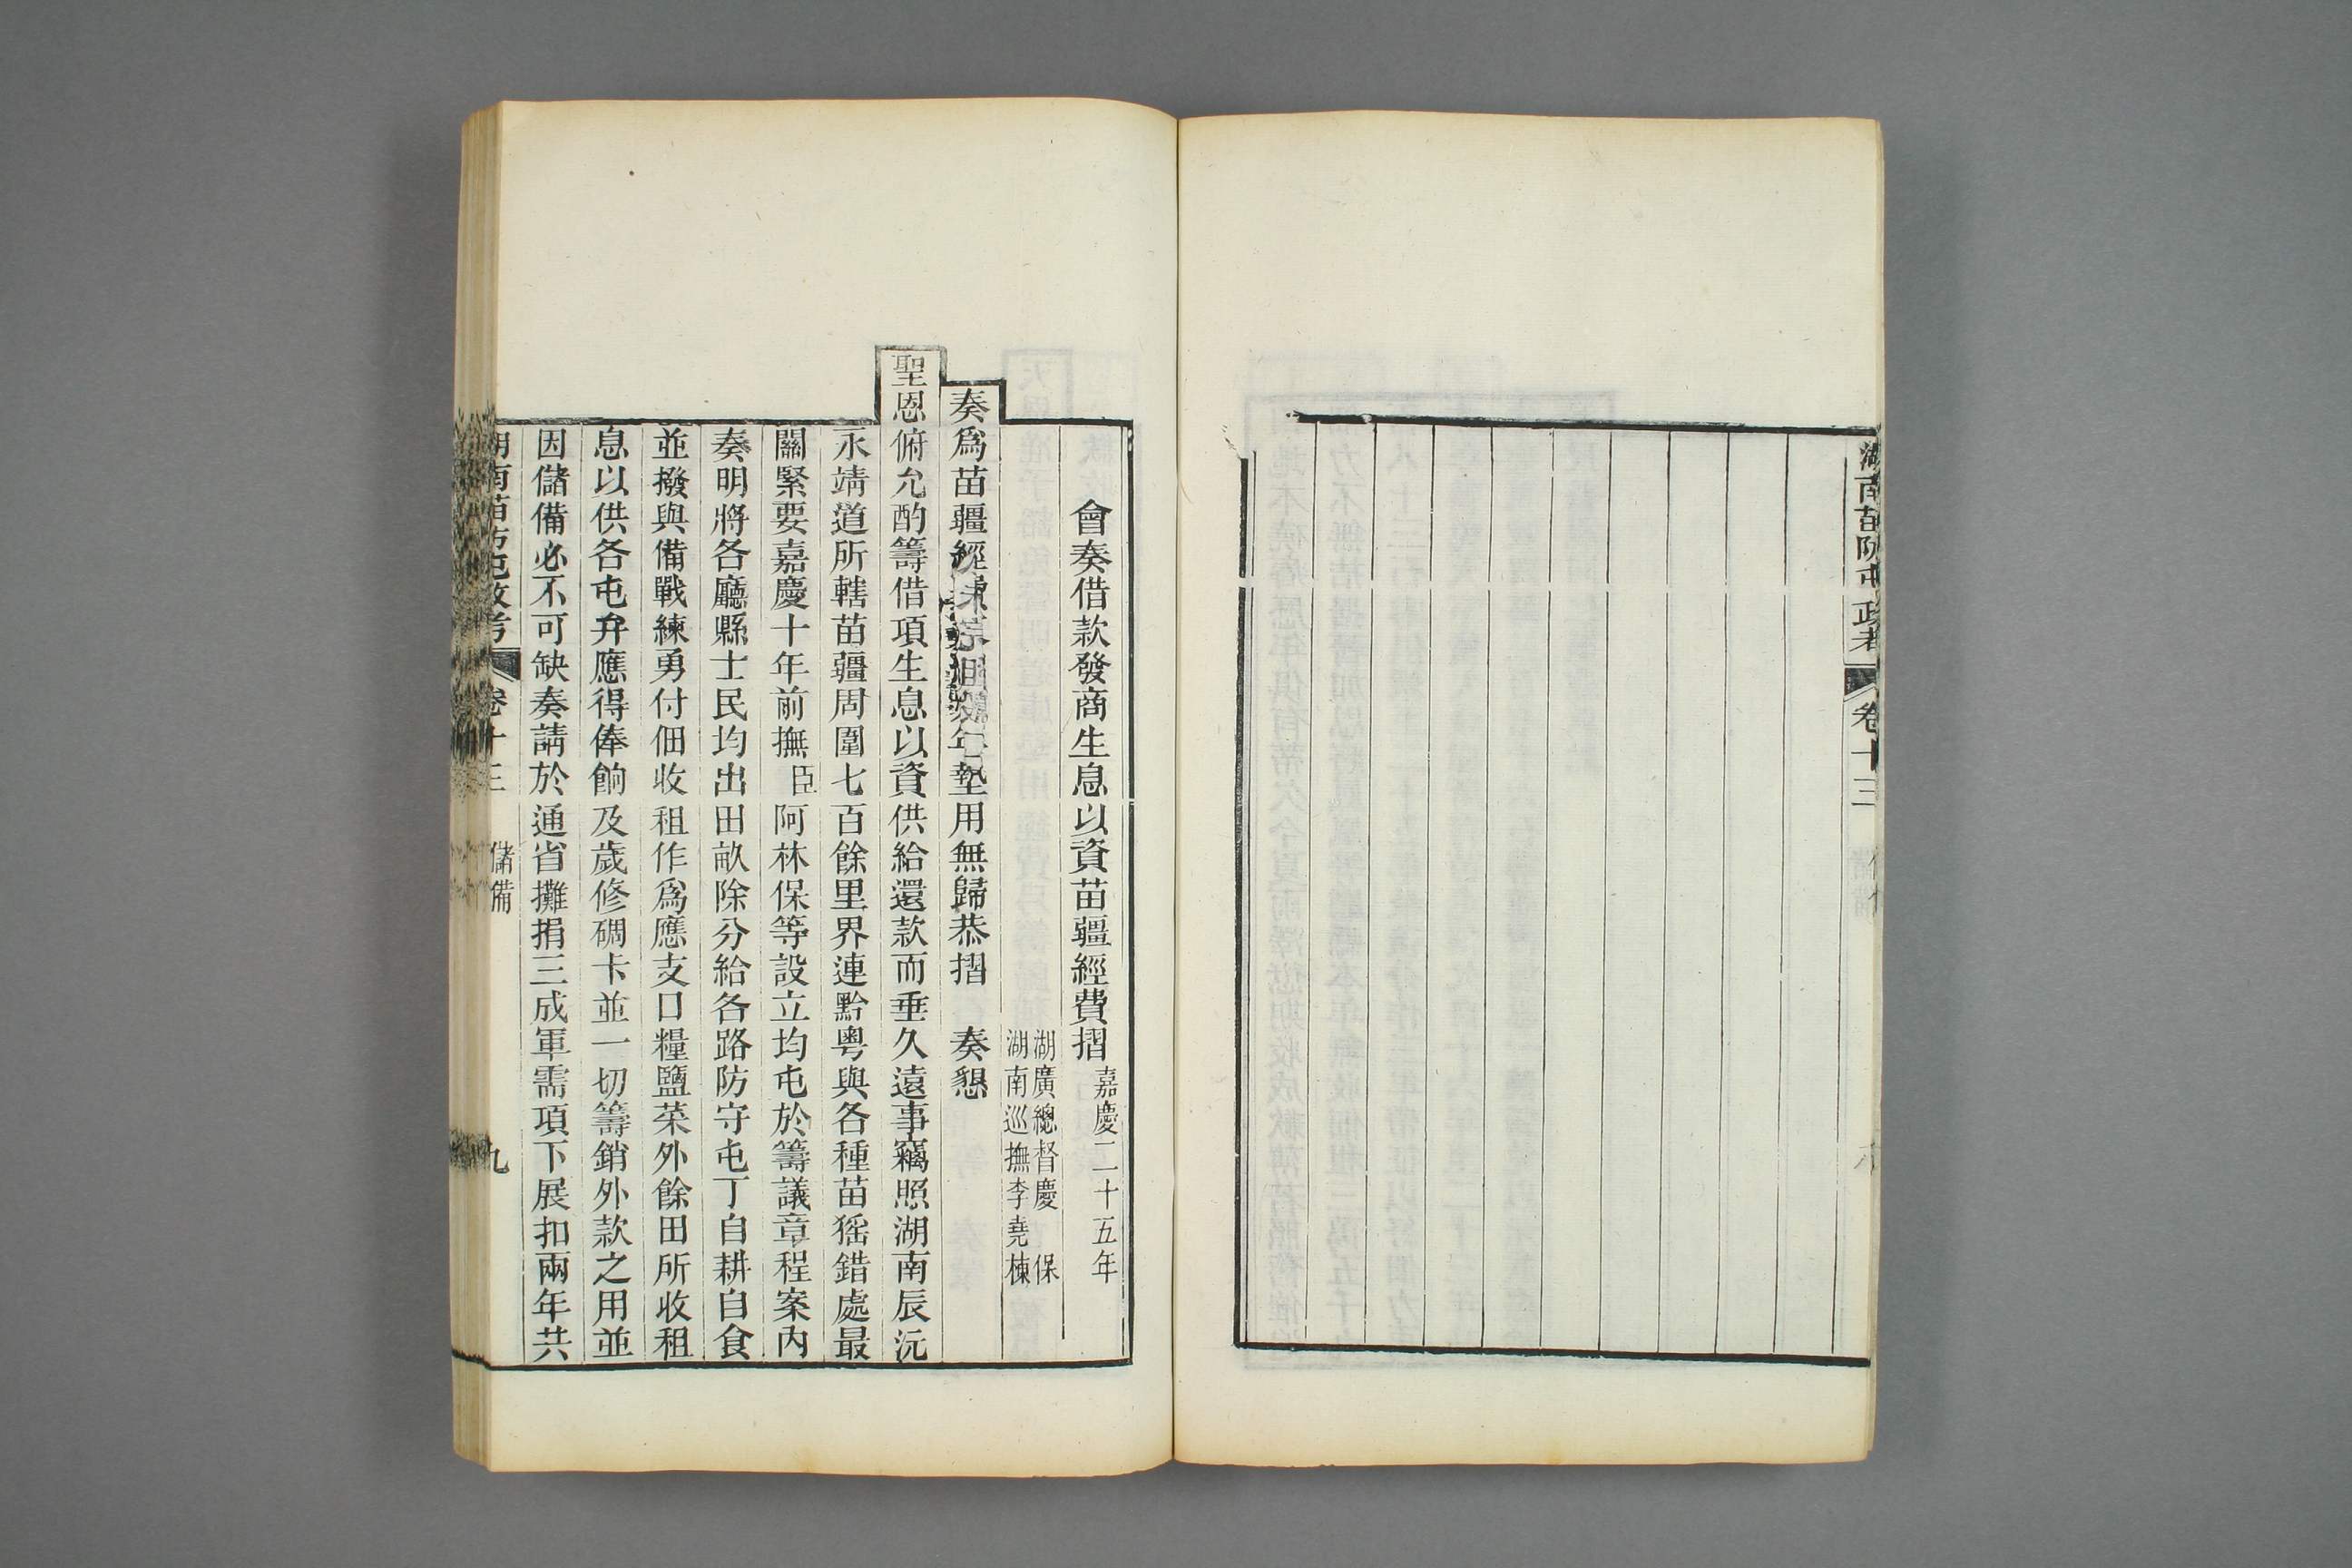 湖南苗防屯政考 卷十三
會奏借款發商生息以資苗疆經費摺 嘉慶二十五年
湖廣總督慶 保
湖南巡撫李堯棟
奏爲苗疆經 年墊用無歸恭摺 奏懇
聖恩俯允酌籌借項生息以資供給還款而垂久遠事竊照湖南辰沅
永靖道所轄苗疆周圍七百餘里界連黔粤與各種苗猺錯處最
關緊要嘉慶十年前撫臣阿林保等設立均屯於籌議章程案內
奏明將各廳縣士民均出田畝除分給各路防守屯丁自耕自食
並撥與備戰練勇付佃收租作爲應支口糧鹽菜外餘田所收租
息以供各屯弁應得俸餉及歲修碉卡並一切籌銷外款之用並
因儲備必不可缺奏請於通省攤捐三成軍需項下展扣兩年共
湖南苗防屯政考 卷十三 儲備 九